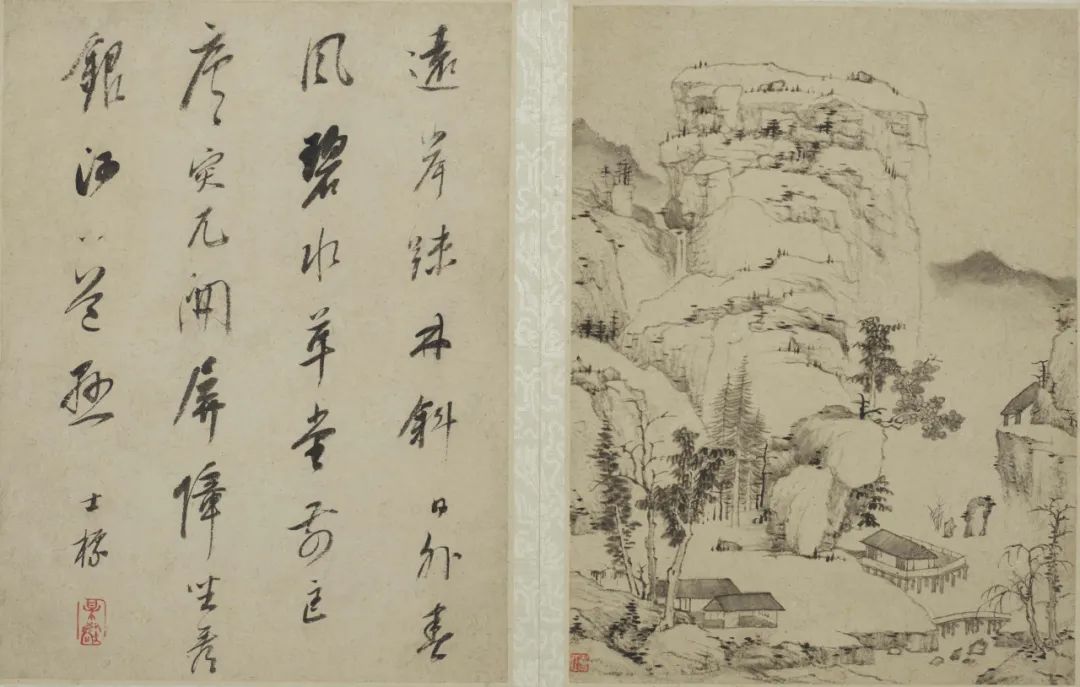 遠岸踈林斜日外春
風碧水草堂前匡
廬突兀開屏障坐看
銀河道懸
士標